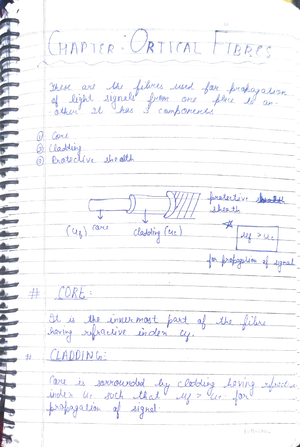 CHAPTER: OPTICAL FIBRES
These are the fibres used for propagation
of light signals from one place to an-
other. It has 3 components
① Core
② Cladding
③ Protective sheath
protective sheath
sheath
(uf) core
cladding (uc)
uf > uc
for propagation of signal
# CORE:
It is the innermost part of the fibre
having refractive index uf.
# CLADDING:
Core is surrounded by cladding having refractive
index uc such that uf > uc for
propagation of signal.